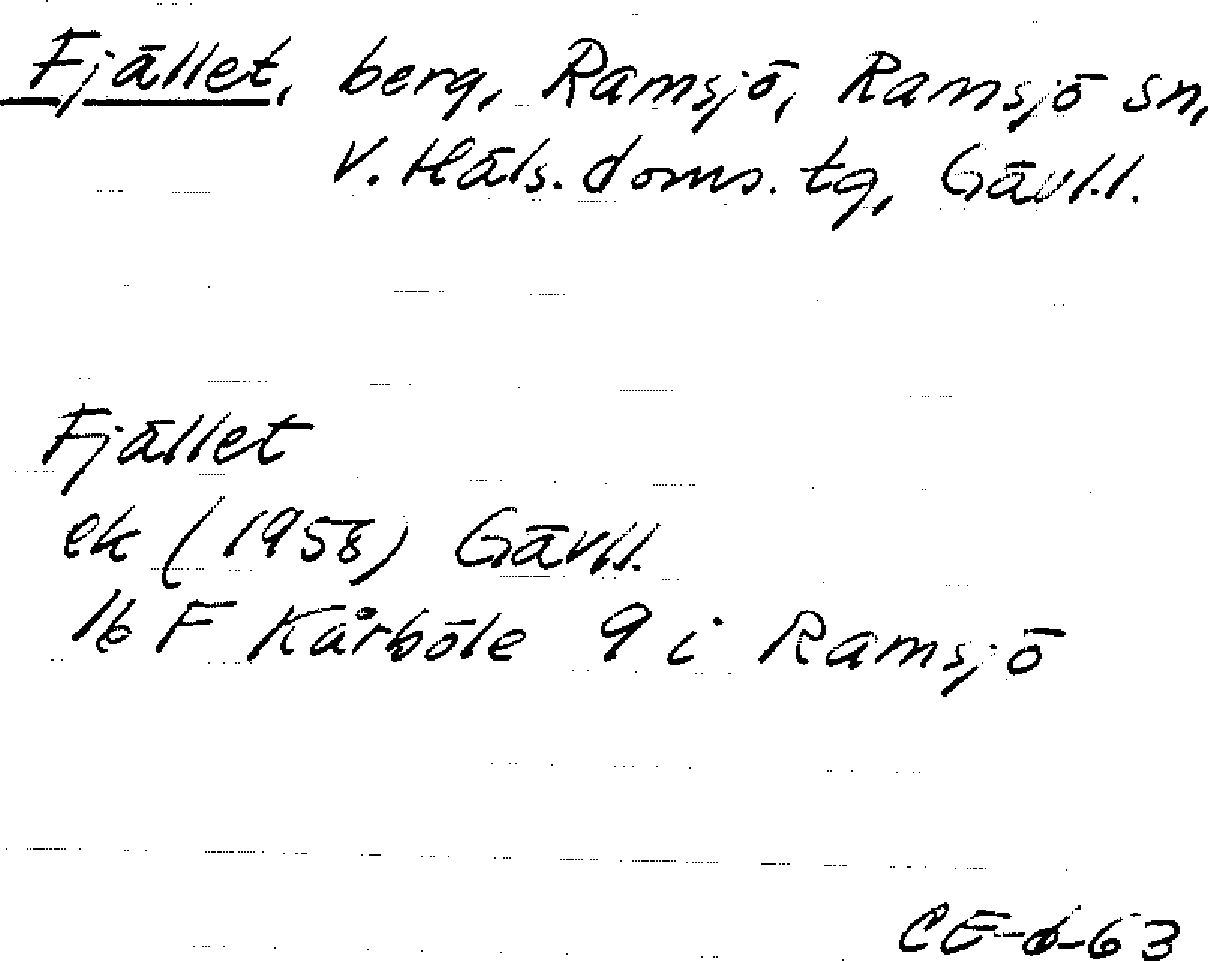 Fjället, berg, Ramsjö, Ramsjö sn,
V. Häls. doms. tg, Gävl.l.
Fjället
ek (1958) Gävl.l.
16 F Kårböle 9 i Ramsjö
CE-6-63